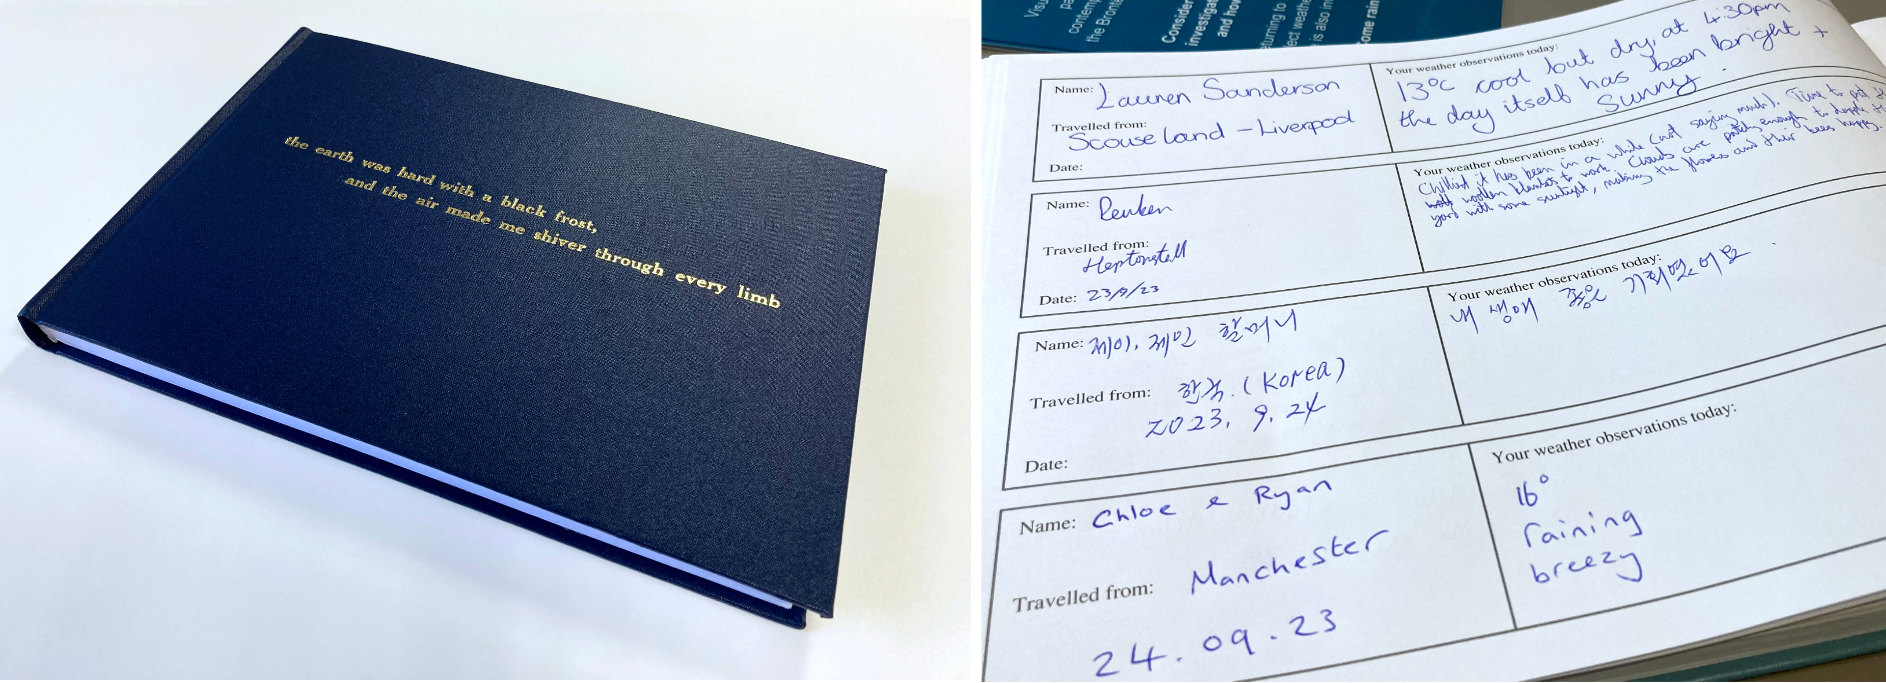 the earth was hard with a black frost,
and the air made me shiver through every limb
Visu
pa
contemp
the Brontë
Consider
investigat
and how
eturning to
lect weathe
is also in
ome rain
Name: Lauren Sanderson
Travelled from:
Scouseland - Liverpool
Date:
Your weather observations today:
13°C cool but dry, at 4:30pm
the day itself has been bright +
Sunny.
Name: Reuben
Travelled from:
Heptonstall
Date: 23/9/23
Your weather observations today:
Chilliest it has been in a while (not saying much). Time to put
woollen blankets to work. Clouds are patchy enough to dapple
yard with some sunlight, making the flowers and their bees happy.
Name: 제이, 제인 할머니
Travelled from: 한국. (Korea)
2023. 9. 24
Date:
Your weather observations today:
내 생애 좋은 기회였어요
Name: Chloe & Ryan
Travelled from: Manchester
24.09.23
Your weather observations today:
16°
raining
breezy